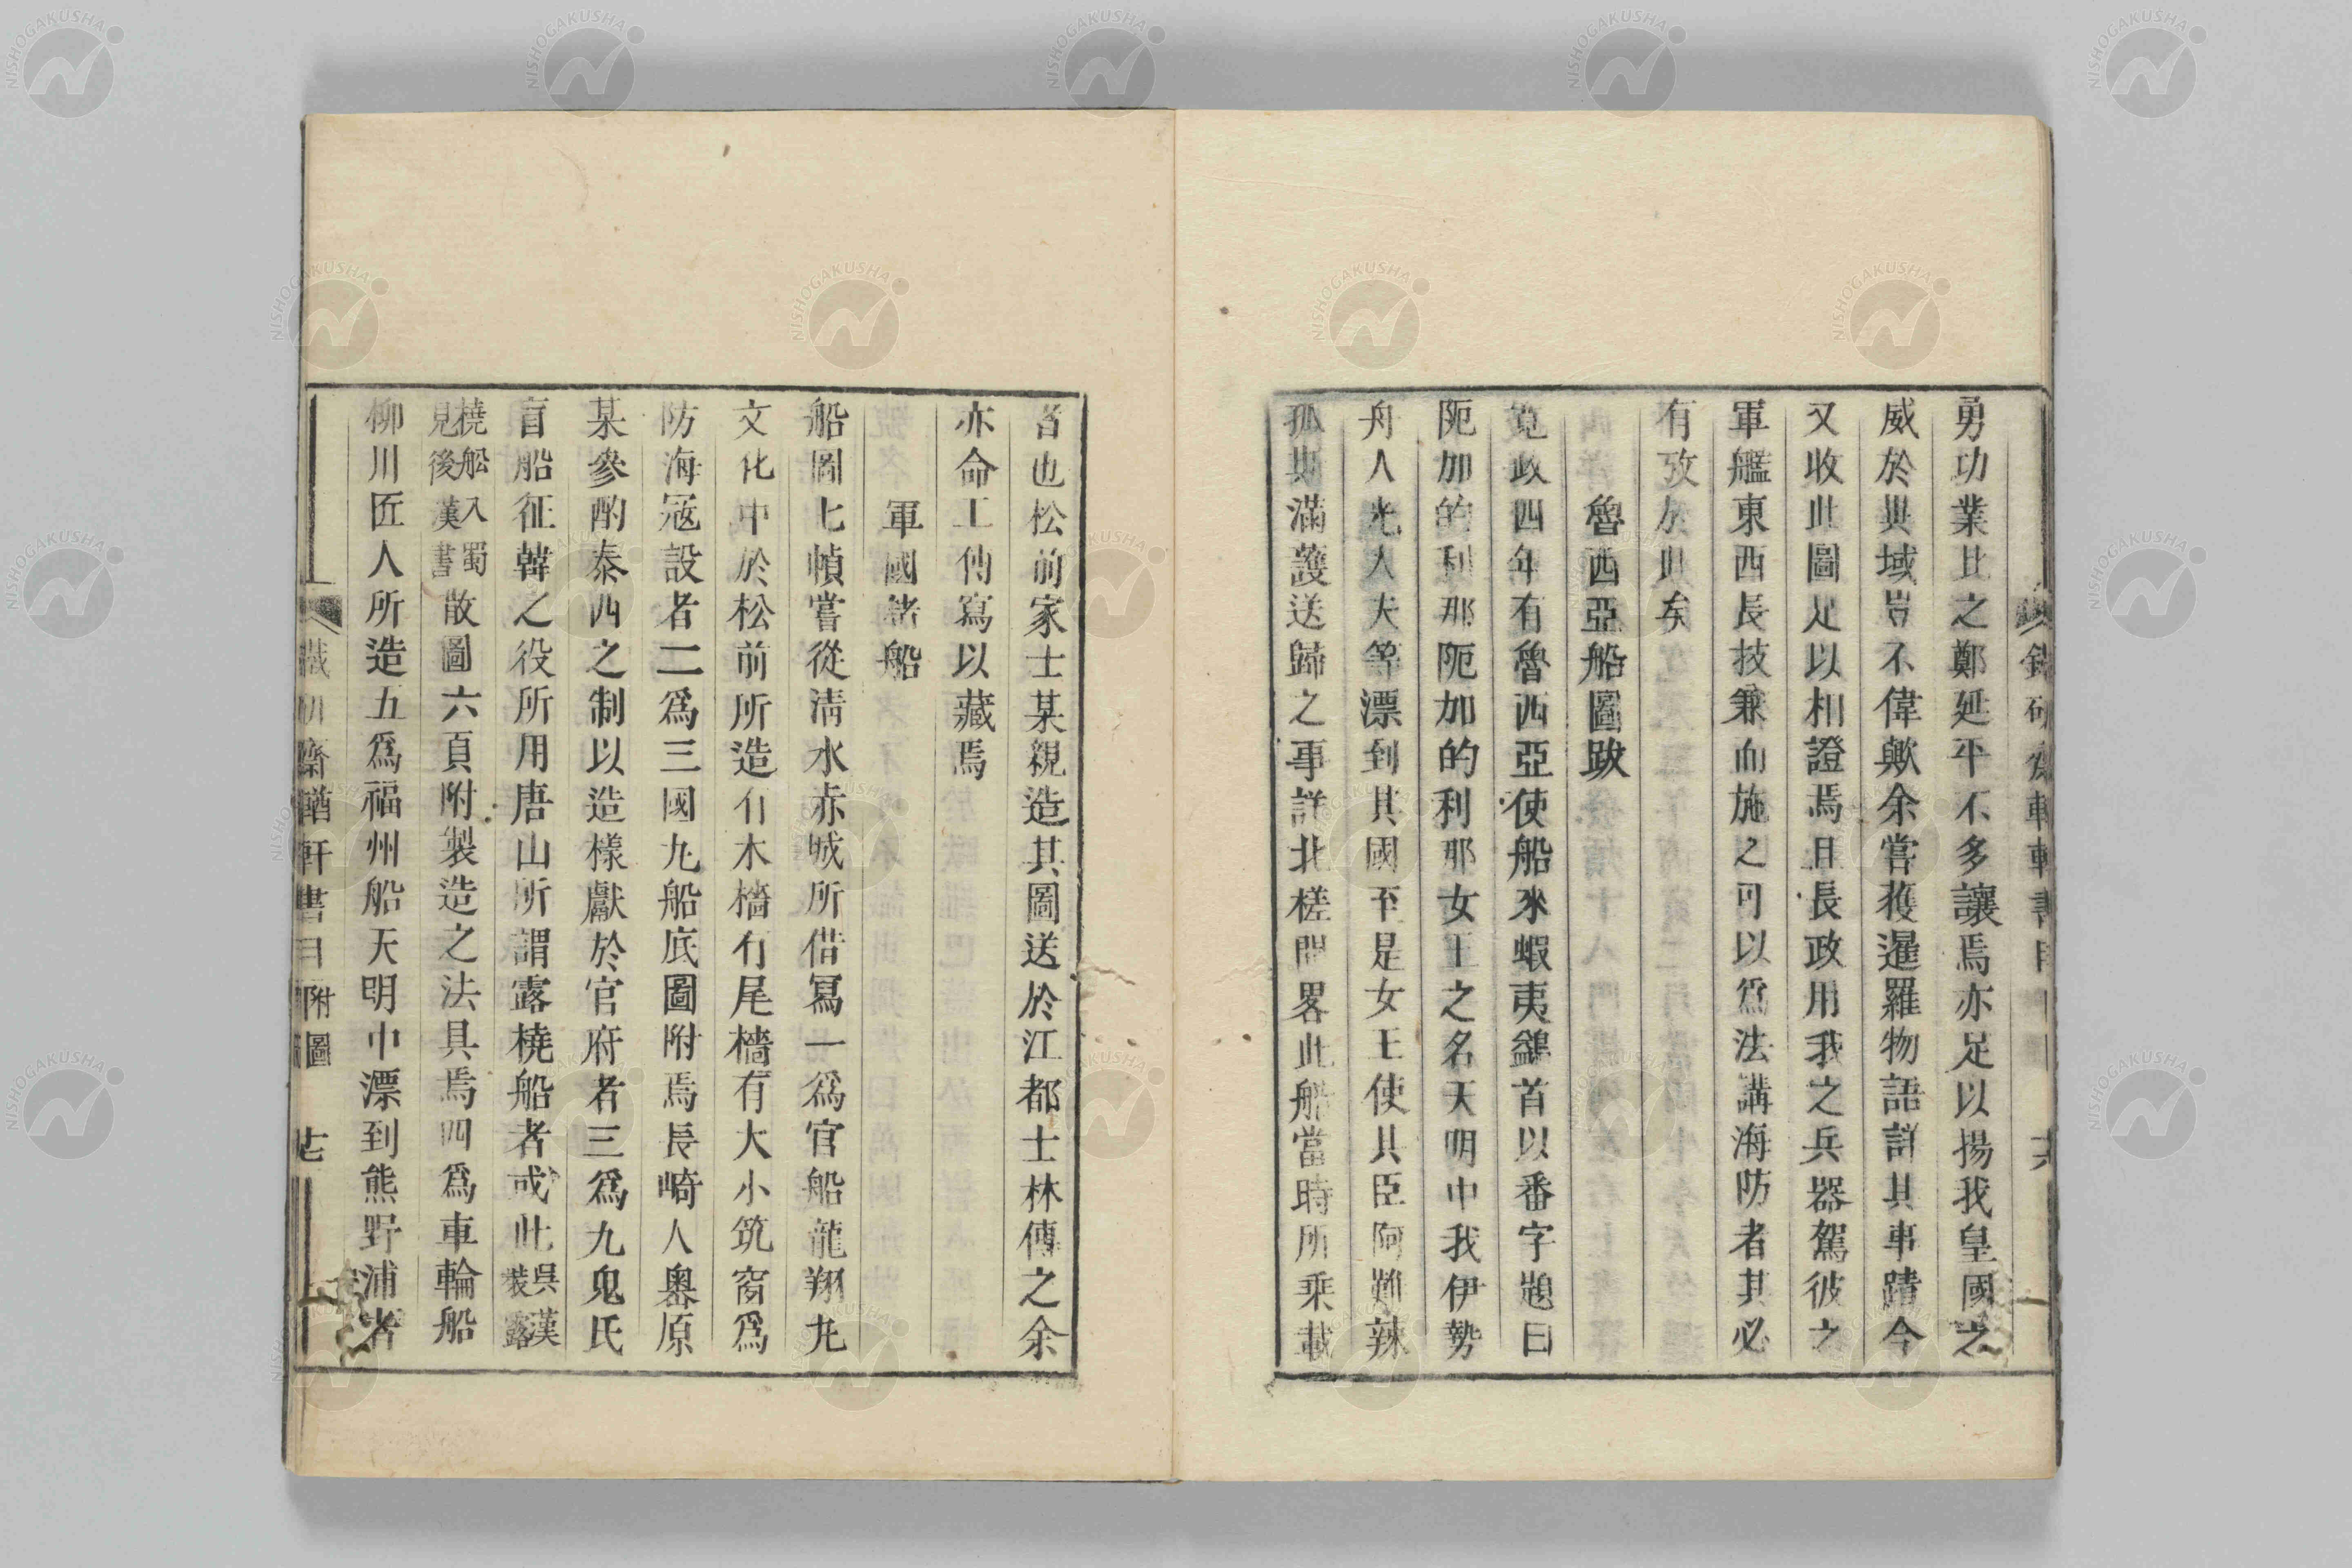 勇功業比之鄭延平不多讓焉亦足以揚我皇國之
威於異域豈不偉歟余嘗獲暹羅物語詳其事蹟今
又收此圖足以相證焉且長政用我之兵器駕彼之
軍艦東西長技兼而施之可以爲法講海防者其必
有攷於此矣
魯西亞船圖跋
寬政四年有魯西亞使船來蝦夷鷁首以番字題曰
阨加的利那阨加的利那女王之名天明中我伊勢
舟人光大夫等漂到其國至是女王使其臣阿難辣
孤斯滿護送歸之事詳北槎聞畧此船當時所乗載
者也松前家士某親造其圖送於江都士林傳之余
亦命工傳寫以藏焉
軍國諸船
船圖七幀嘗從清水赤城所借冩一爲官船龍翔丸
文化中於松前所造有木檣有尾檣有大小筑窗爲
防海冦設者二爲三國九船底圖附焉長崎人奧原
某參酌泰西之制以造樣獻於官府者三爲九鬼氏
盲船征韓之役所用唐山所謂露橈船者或此吳漢裝露
橈舩入蜀見後漢書散圖六頁附製造之法具焉四爲車輪船
柳川匠人所造五爲福州船天明中漂到熊野浦者
藏 齋輶軒書目附圖 十七